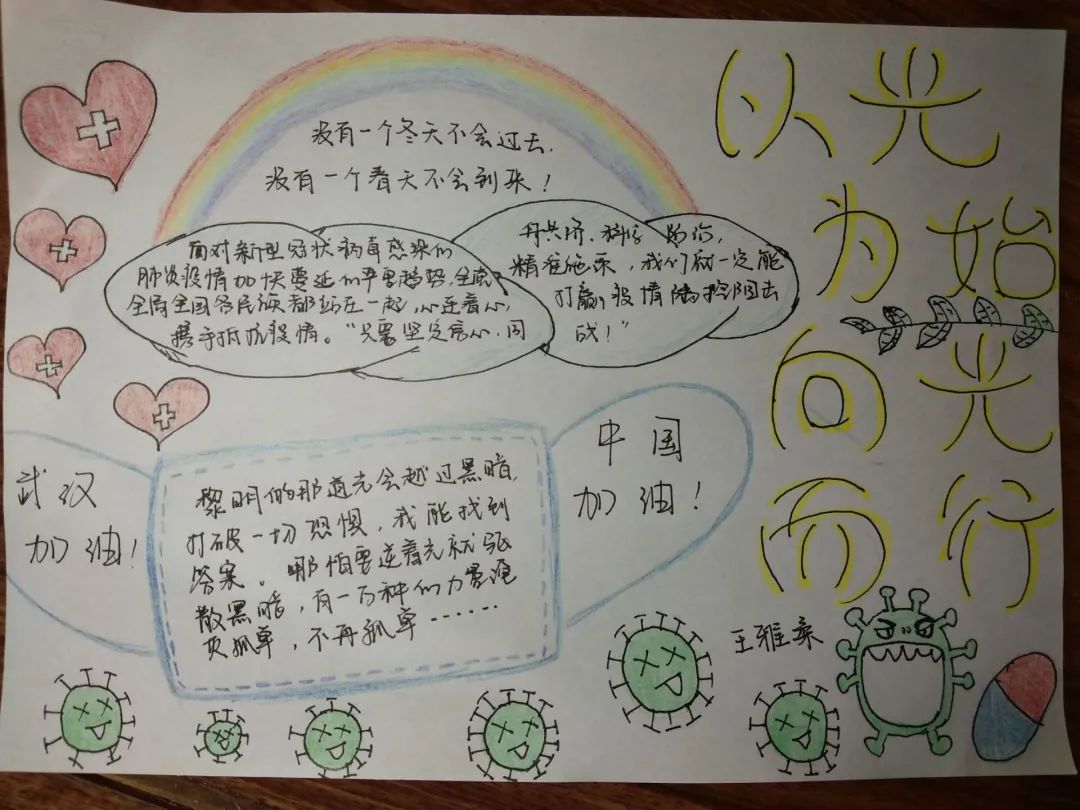 以光
为始
向光
而行
没有一个冬天不会过去.
没有一个春天不会到来!
面对新型冠状病毒感染的
肺炎疫情加快蔓延的严重趋势,全
全国各民族都站在一起,心连着心,
携手抗疫情。“只要坚定信心、同
舟共济、科学防治,
精准施策,我们就一定能
打赢疫情防控阻击
战!”
武汉
加油!
黎明的那道光会越过黑暗,
打破一切恐惧,我能找到
答案。哪怕要逆着光就驱
散黑暗,有一万种的力量淹
灭孤单,不再孤单……
中国
加油!
王雅